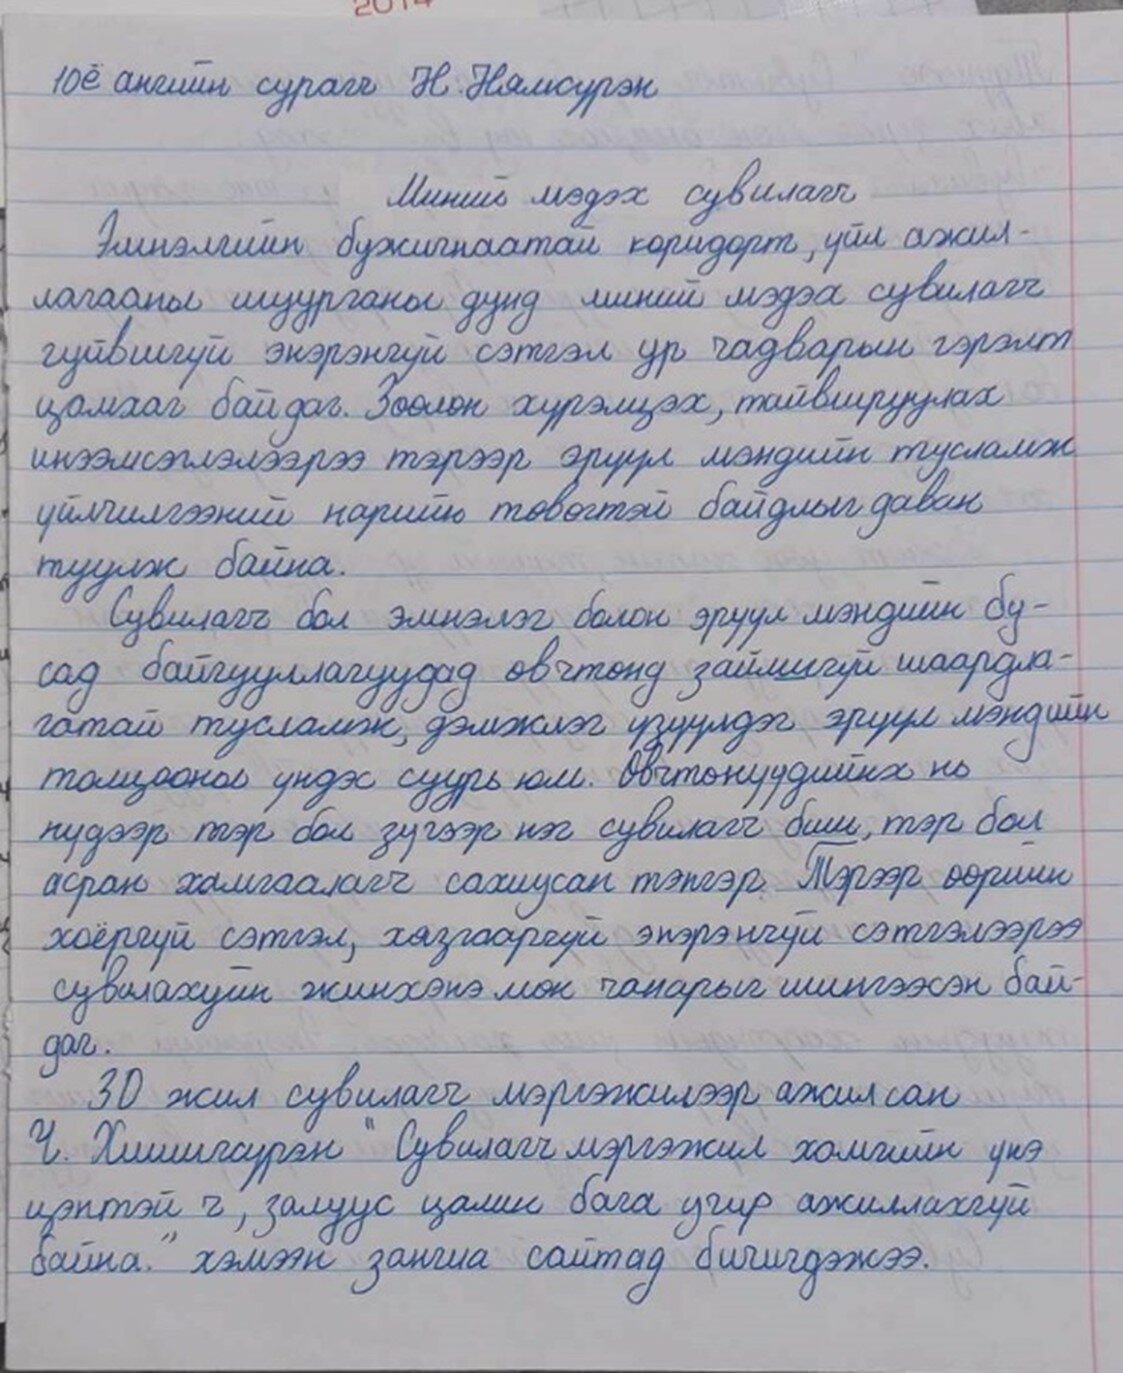 2014
10ё ангийн сурагч Н.Нямсүрэн
Миний мэдэх сувилагч
Эмнэлгийн бужигнаатай коридорт, үйл ажил-
лагааны шуурганы дунд миний мэдэх сувилагч
гуйвшгүй энэрэнгүй сэтгэл ур чадварын гэрэлт
цамхаг байдаг. Зөөлөн хүрэлцэх, тайвшруулах
инээмсэглэлээрээ тэрээр эрүүл мэндийн тусламж
үйлчилгээний нарийн төвөгтэй байдлыг даван
туулж байна.
Сувилагч бол эмнэлэг болон эрүүл мэндийн бу-
сад байгууллагуудад өвчтөнд зайлшгүй шаардла-
гатай тусламж, дэмжлэг үзүүлдэг эрүүл мэндийн
тогтолцооны үндэс суурь юм. Өвчтөнүүдийнх нь
нүдээр тэр бол зүгээр нэг сувилагч биш, тэр бол
асран хамгаалагч сахиусан тэнгэр. Тэрээр өөрийн
хоёргүй сэтгэл, хязгааргүй энэрэнгүй сэтгэлээрээ
сувилахуйн жинхэнэ мөн чанарыг шингээсэн бай-
даг.
30 жил сувилагч мэргэжилээр ажилсан
Ч. Хишигсүрэн "Сувилагч мэргэжил хамгийн үнэ
цэнтэй ч, залуус цалин бага учир ажиллахгүй
байна." хэмээн зангиа сайтад бичигдэжээ.